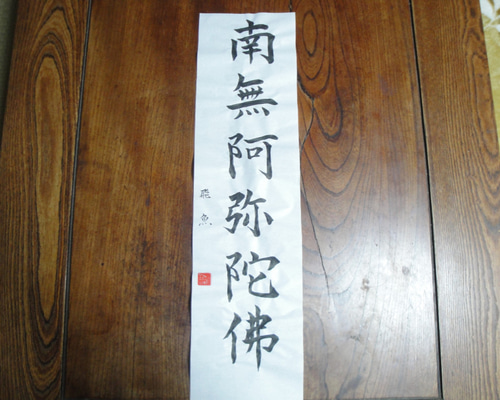 南無阿弥陀佛
飛魚